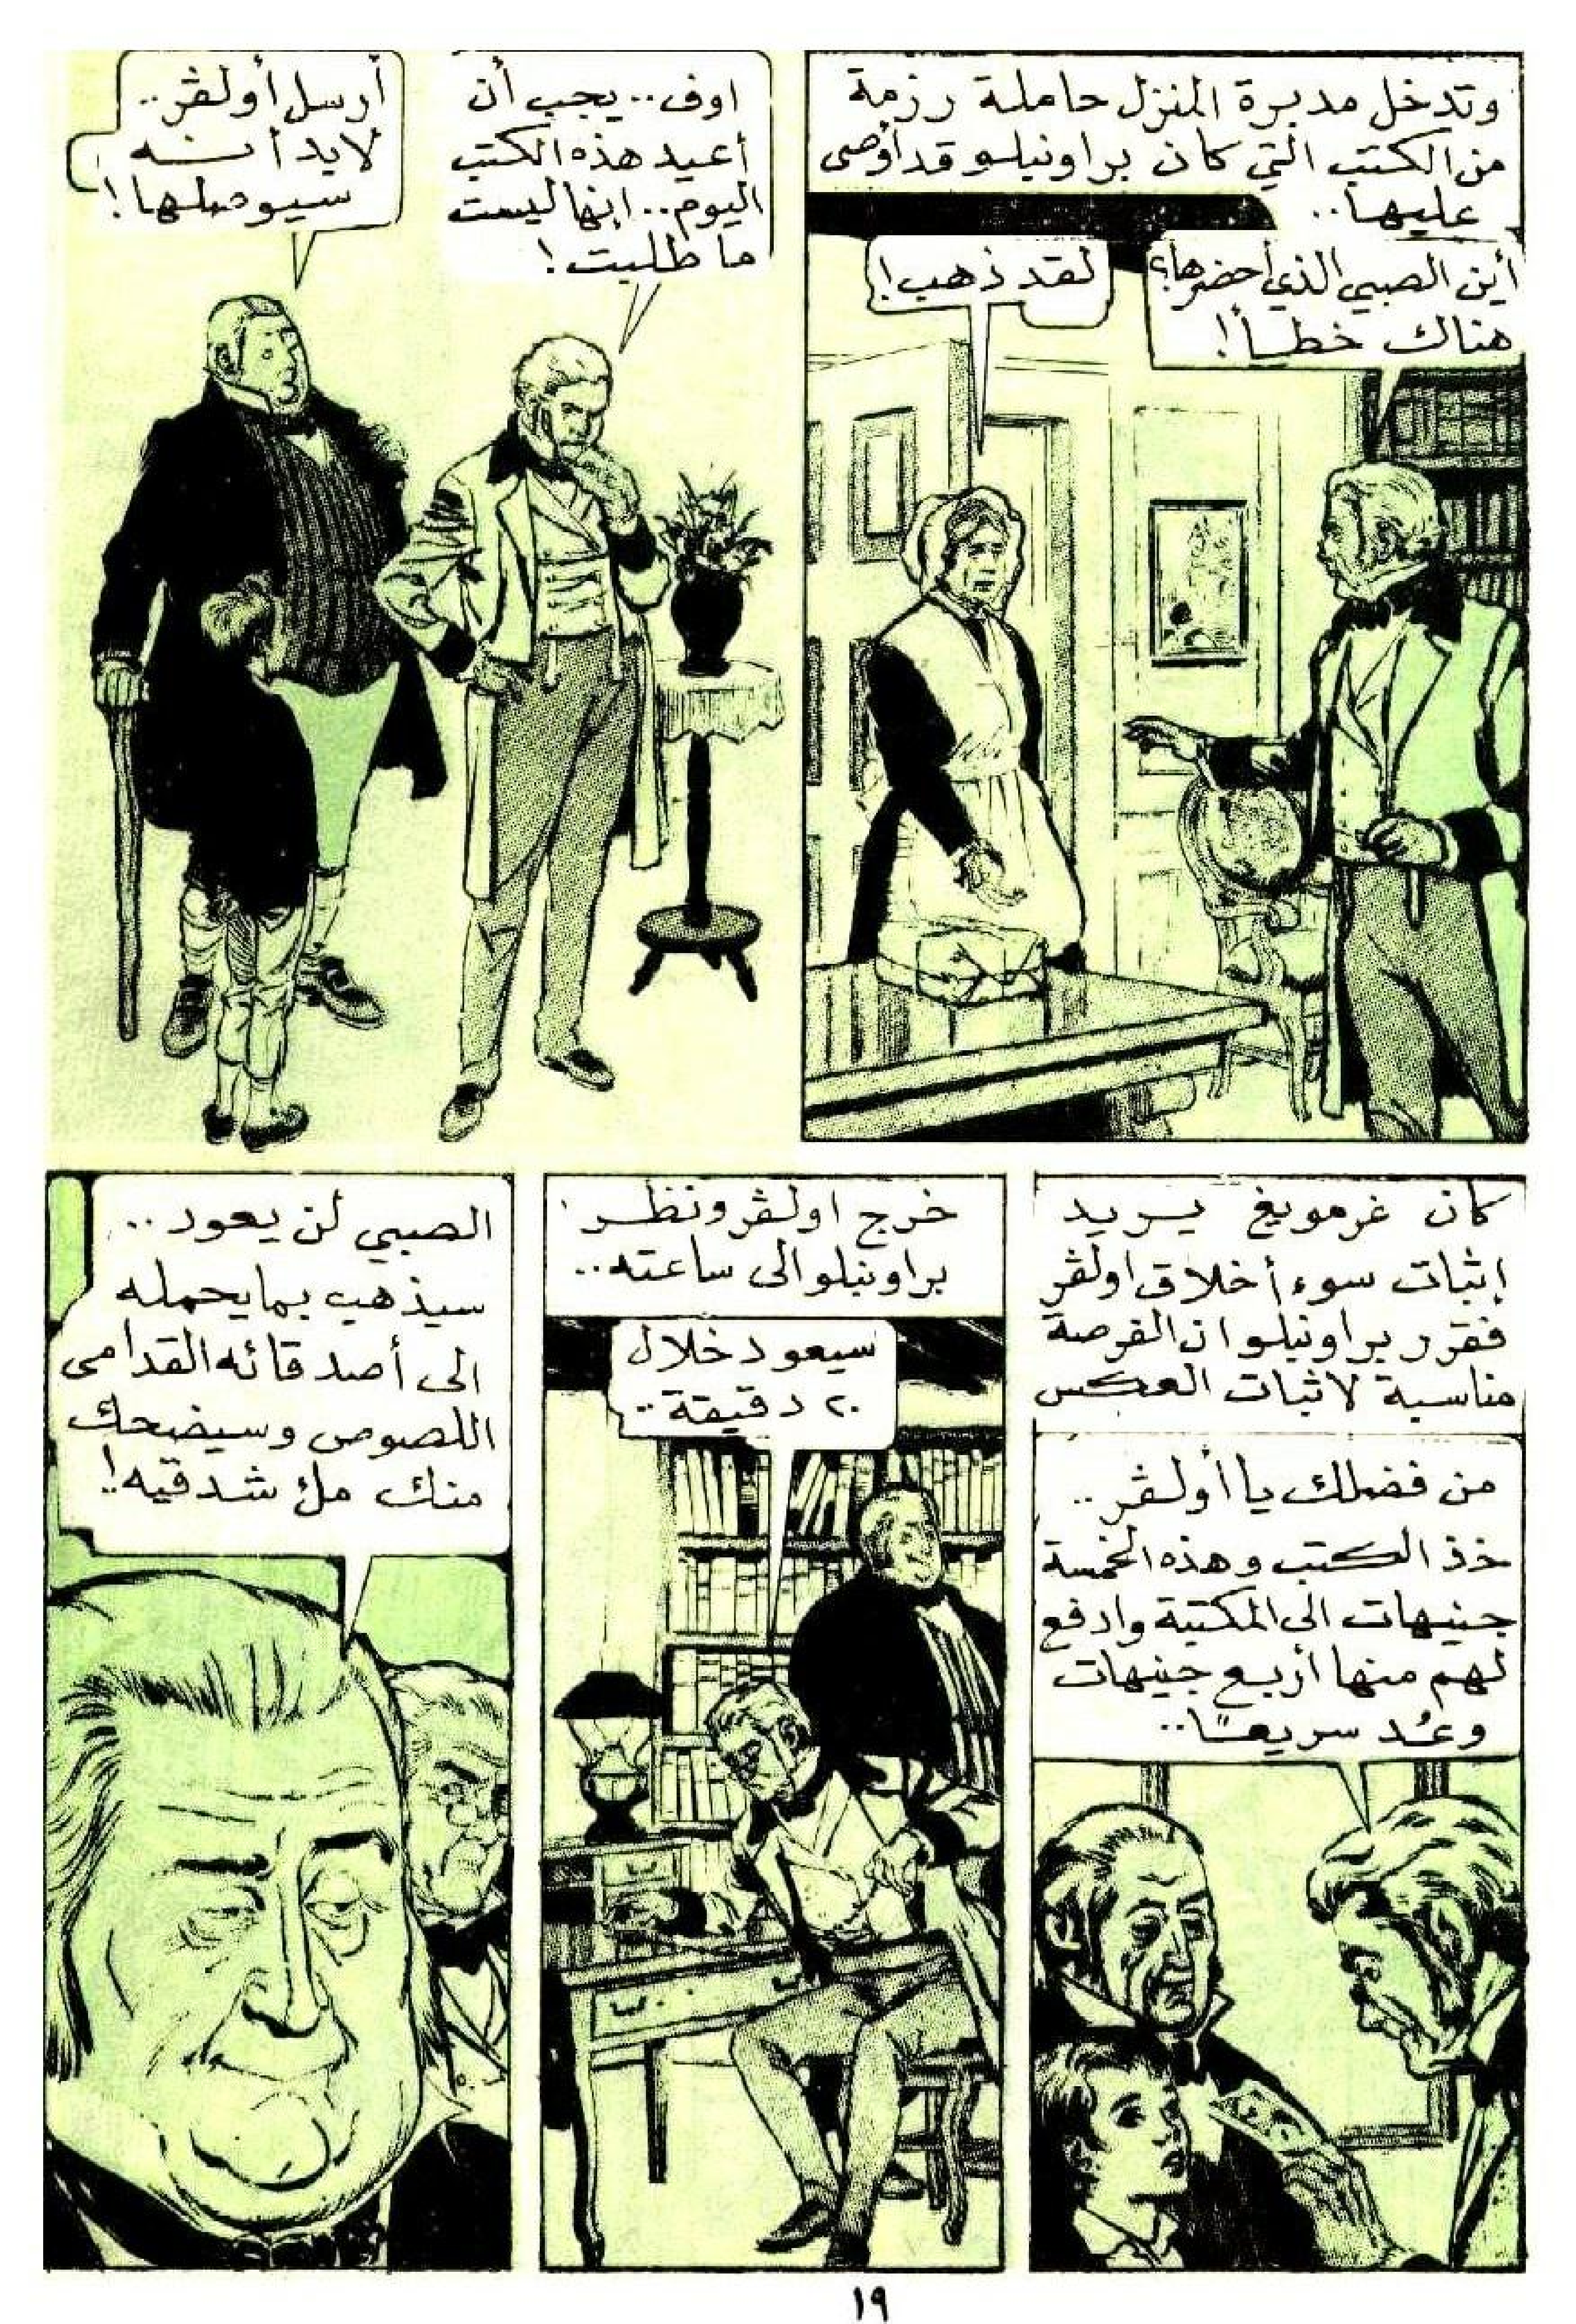 وتدخل مدبرة المنزل حاملة رزمة
من الكتب التي كان براونيلو قد أوصى
عليها..
أين الصبي الذي أحضرها؟
هناك خطأ!
لقد ذهب!
اوف.. يجب أن
أعيد هذه الكتب
اليوم.. إنها ليست
ما طلبت!
أرسل أولڤر..
لابد أنه
سيوصلها!
كان غرمويغ يريد
إثبات سوء أخلاق اولڤر
فقرر براونيلو ان الفرصة
مناسبة لاثبات العكس
من فضلك يا أولڤر..
خذ الكتب وهذه الخمسة
جنيهات الى المكتبة وادفع
لهم منها أربع جنيهات
وعُد سريعًا..
خرج اولڤر ونظر
براونيلو الى ساعته..
سيعود خلال
٢٠ دقيقة..
الصبي لن يعود..
سيذهب بما يحمله
الى أصدقائه القدامى
اللصوص وسيضحك
منك ملء شدقيه!!
١٩